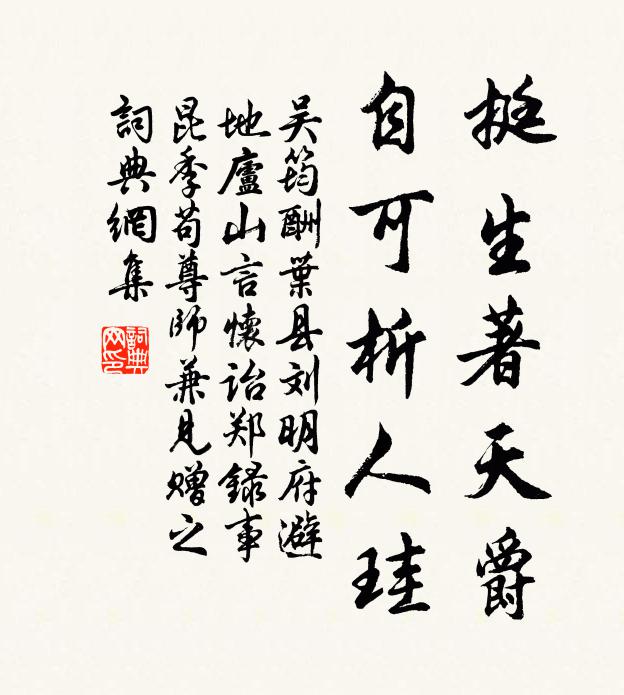 挺生著天爵
自可析人珪
吴筠酬葉县刘明府避
地廬山言懷詒郑録事
昆季苟尊师兼見赠之
詞典網集
詞典
网印